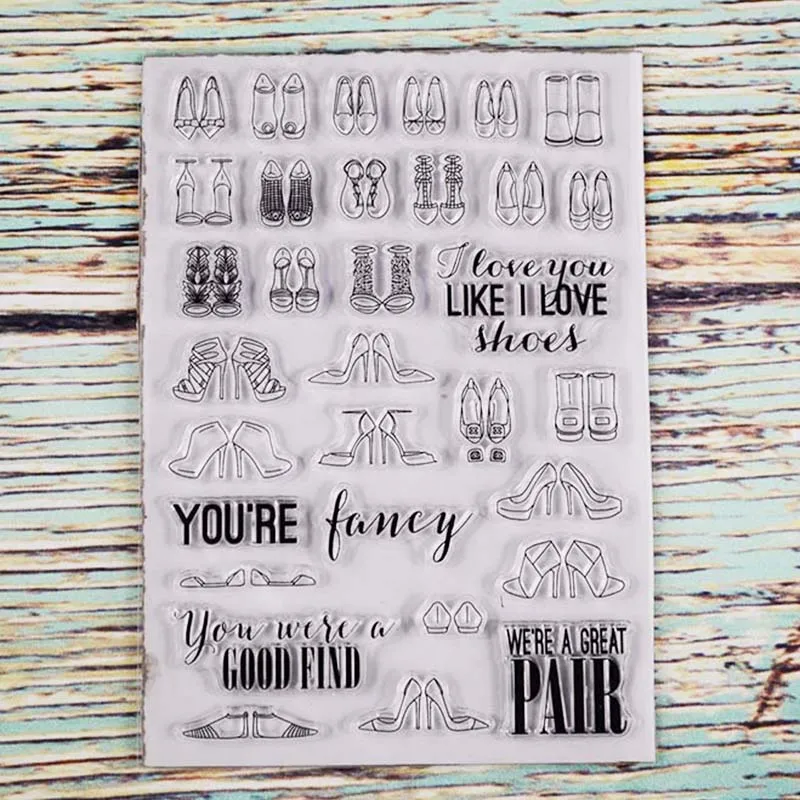 I love you
LIKE I LOVE
shoes
YOU'RE fancy
You were a
GOOD FIND
WE'RE A GREAT
PAIR